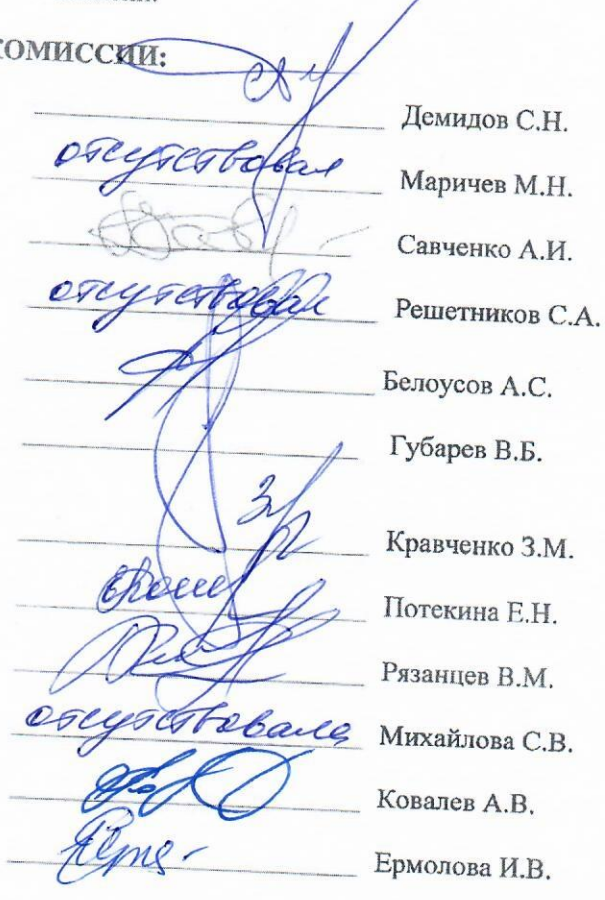 КОМИССИИ:
Демидов С.Н.
отсутствовал Маричев М.Н.
Савченко А.И.
отсутствовал Решетников С.А.
Белоусов А.С.
Губарев В.Б.
Кравченко З.М.
Потекина Е.Н.
Рязанцев В.М.
отсутствовала Михайлова С.В.
Ковалев А.В.
Ермолова И.В.